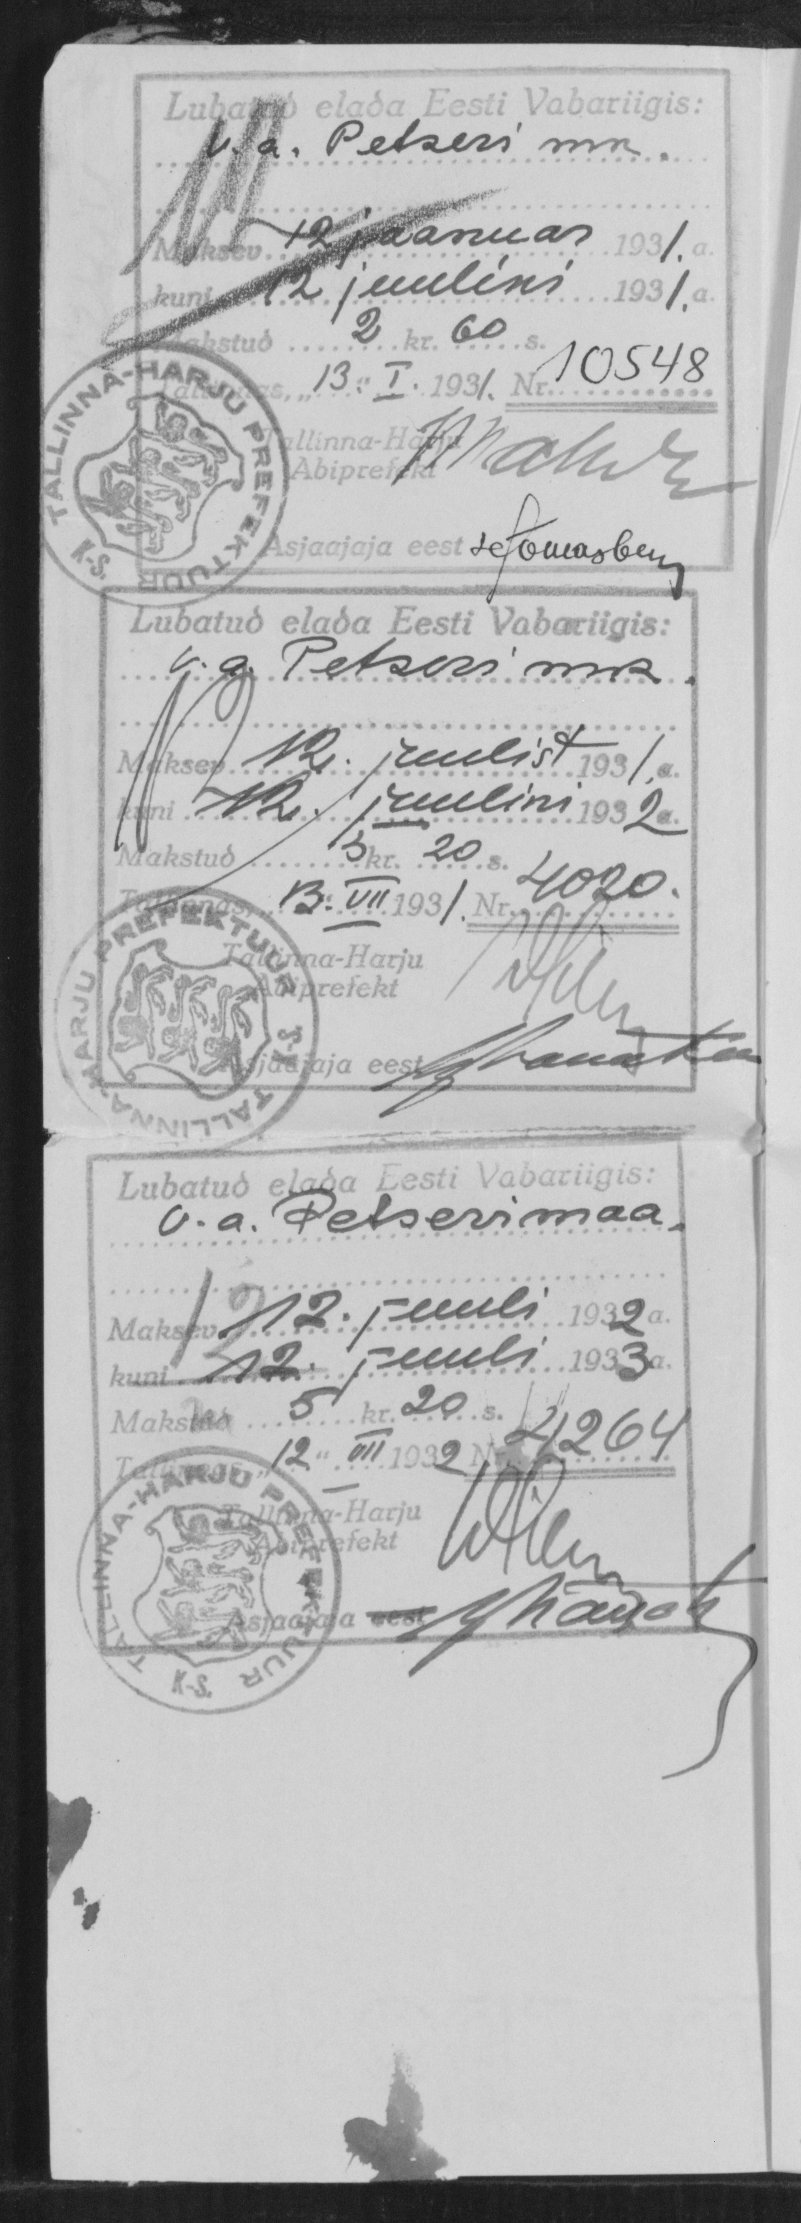 Lubatud elada Eesti Vabariigis:
v.a. Petseri mk.
Maksev 12 jaanuar 1931. a.
kuni 12 juulini 1931. a.
Makstud 2 kr. 60 s.
Tallinnas, „13." I. 1931. Nr. 10548
Tallinna-Harju
Abiprefekt
Asjaajaja eest
TALLINNA-HARJU PREFEKTUUR K-S.
Lubatud elada Eesti Vabariigis:
v.a. Petseri mk.
Maksev 12. juulist 1931. a.
kuni 12. juulini 1932 a.
Makstud 5 kr. 20 s.
Tallinnas, 13. VII 1931. Nr. 4020.
Tallinna-Harju
Abiprefekt
Asjaajaja eest
TALLINNA-HARJU PREFEKTUUR K-S.
Lubatud elada Eesti Vabariigis:
v.a. Petserimaa.
Maksev 12. juuli 1932 a.
kuni 12. juuli 1933 a.
Makstud 5 kr. 20 s.
Tallinnas, „12" VII 1932 Nr. 4264
Tallinna-Harju
Abiprefekt
Asjaajaja eest
TALLINNA-HARJU PREFEKTUUR K-S.